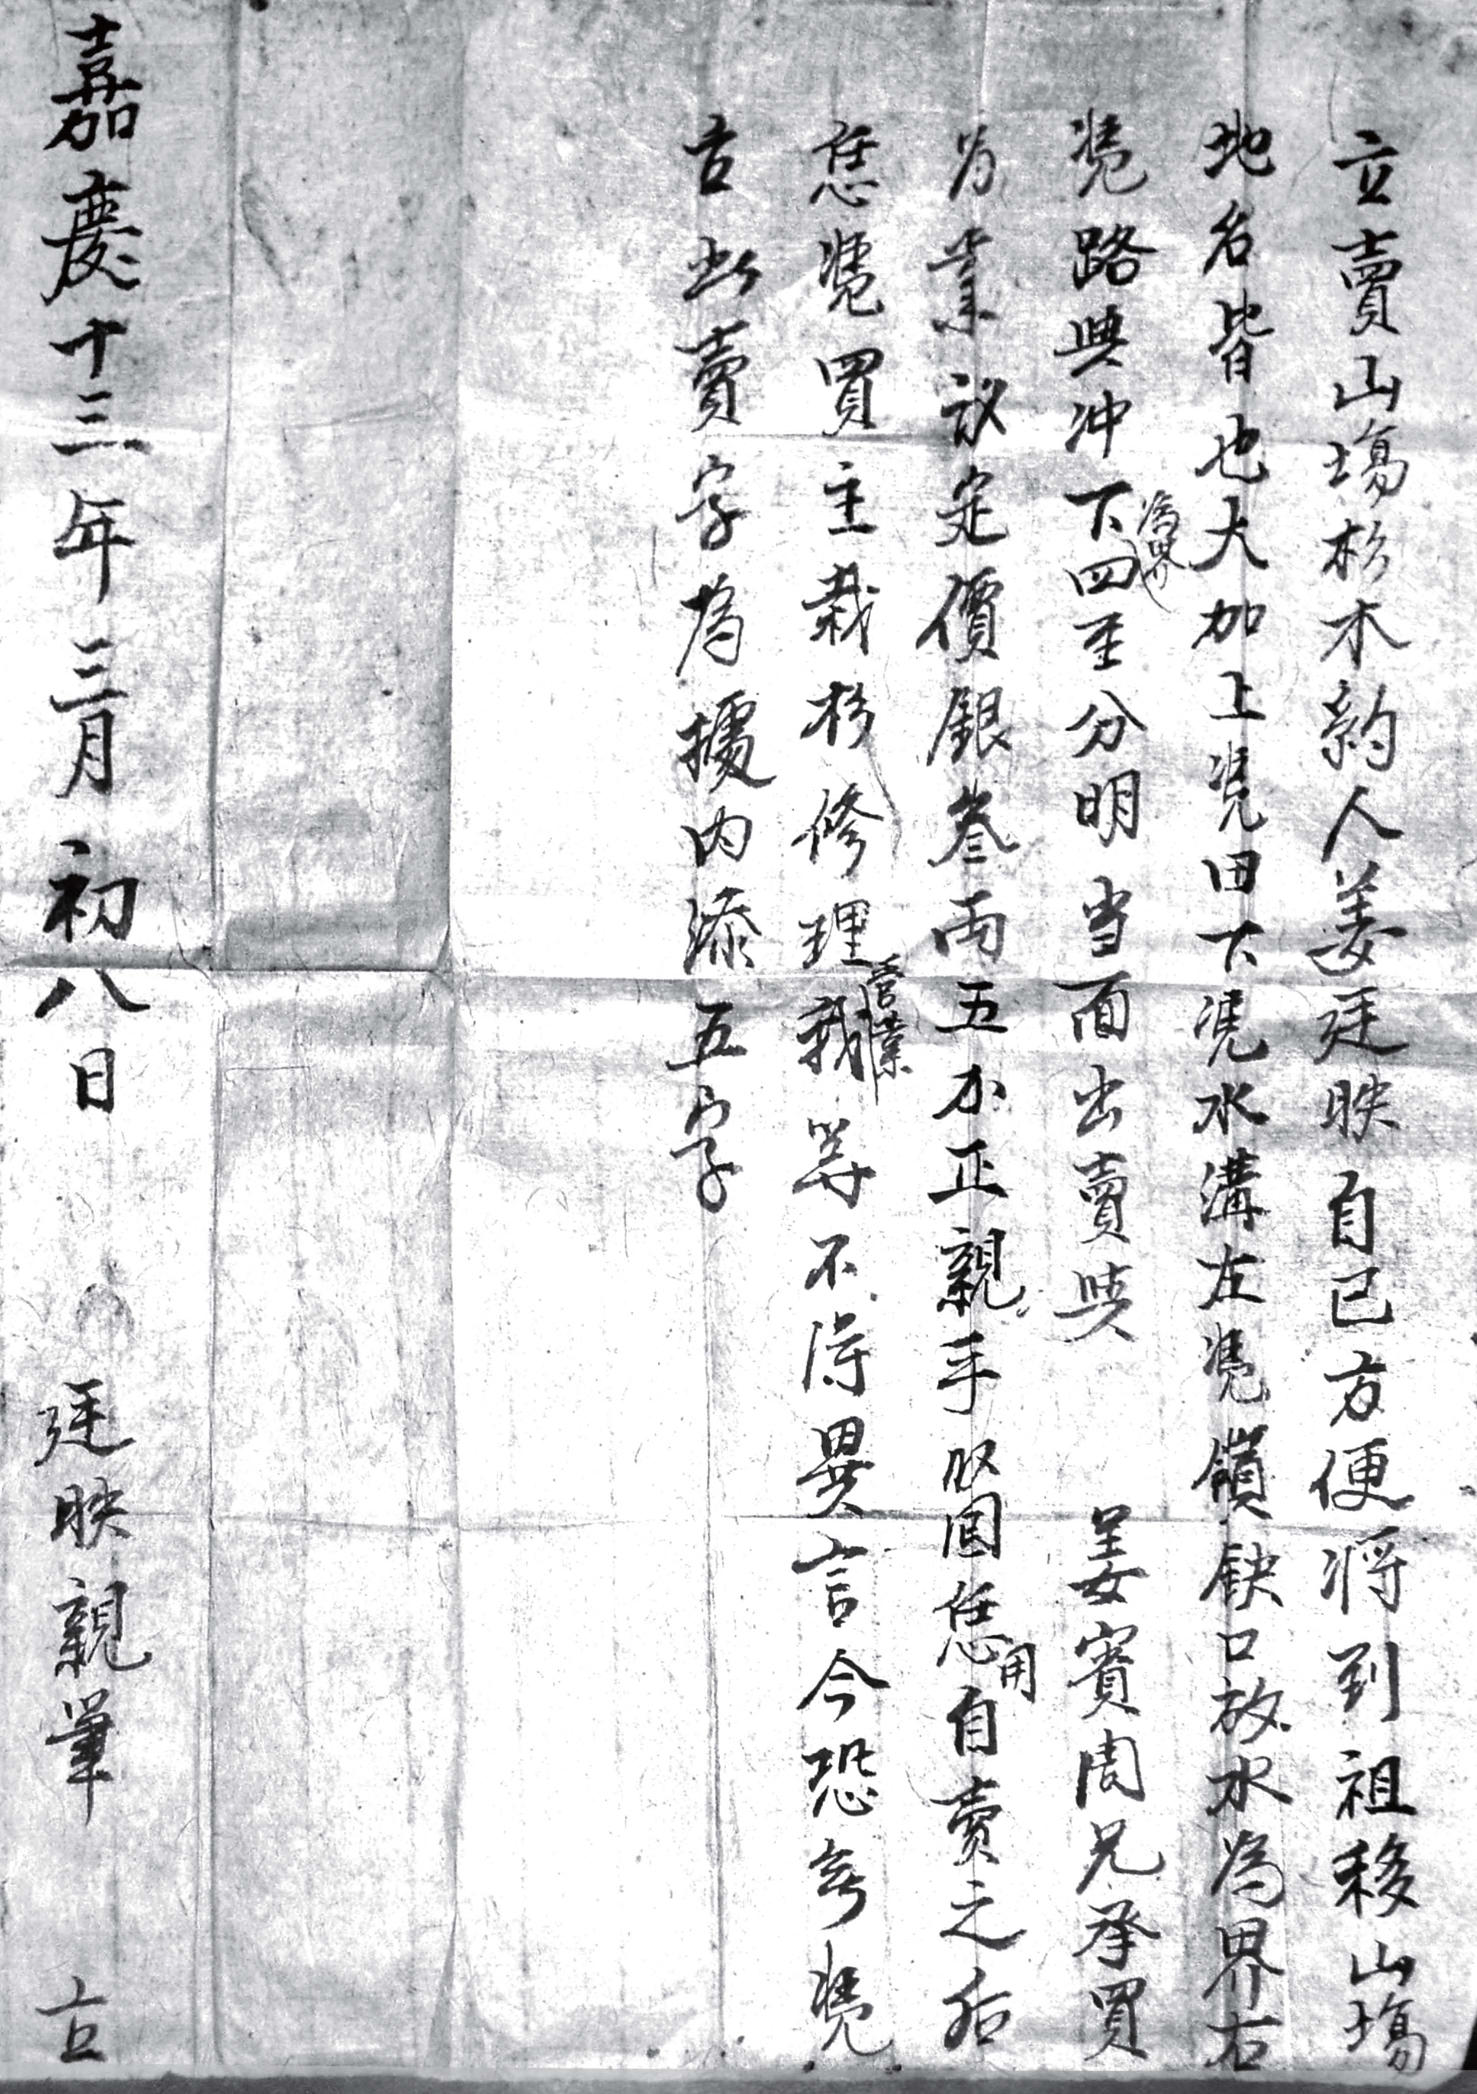 立賣山塲杉木約人姜廷映自己方便將到祖移山塲
地名皆也大加上凴田下凴水溝左凴嶺缺口放水為界右
凴路與冲下為界四至分明当面出賣與　姜賓周兄承買
为業议定價銀叁両五分正親手收回恁用自賣之后
恁凴買主栽杉修理管業我等不得異言今恐無凴
立此賣字為據内添五字
嘉慶十三年三月初八日　廷映親筆　立